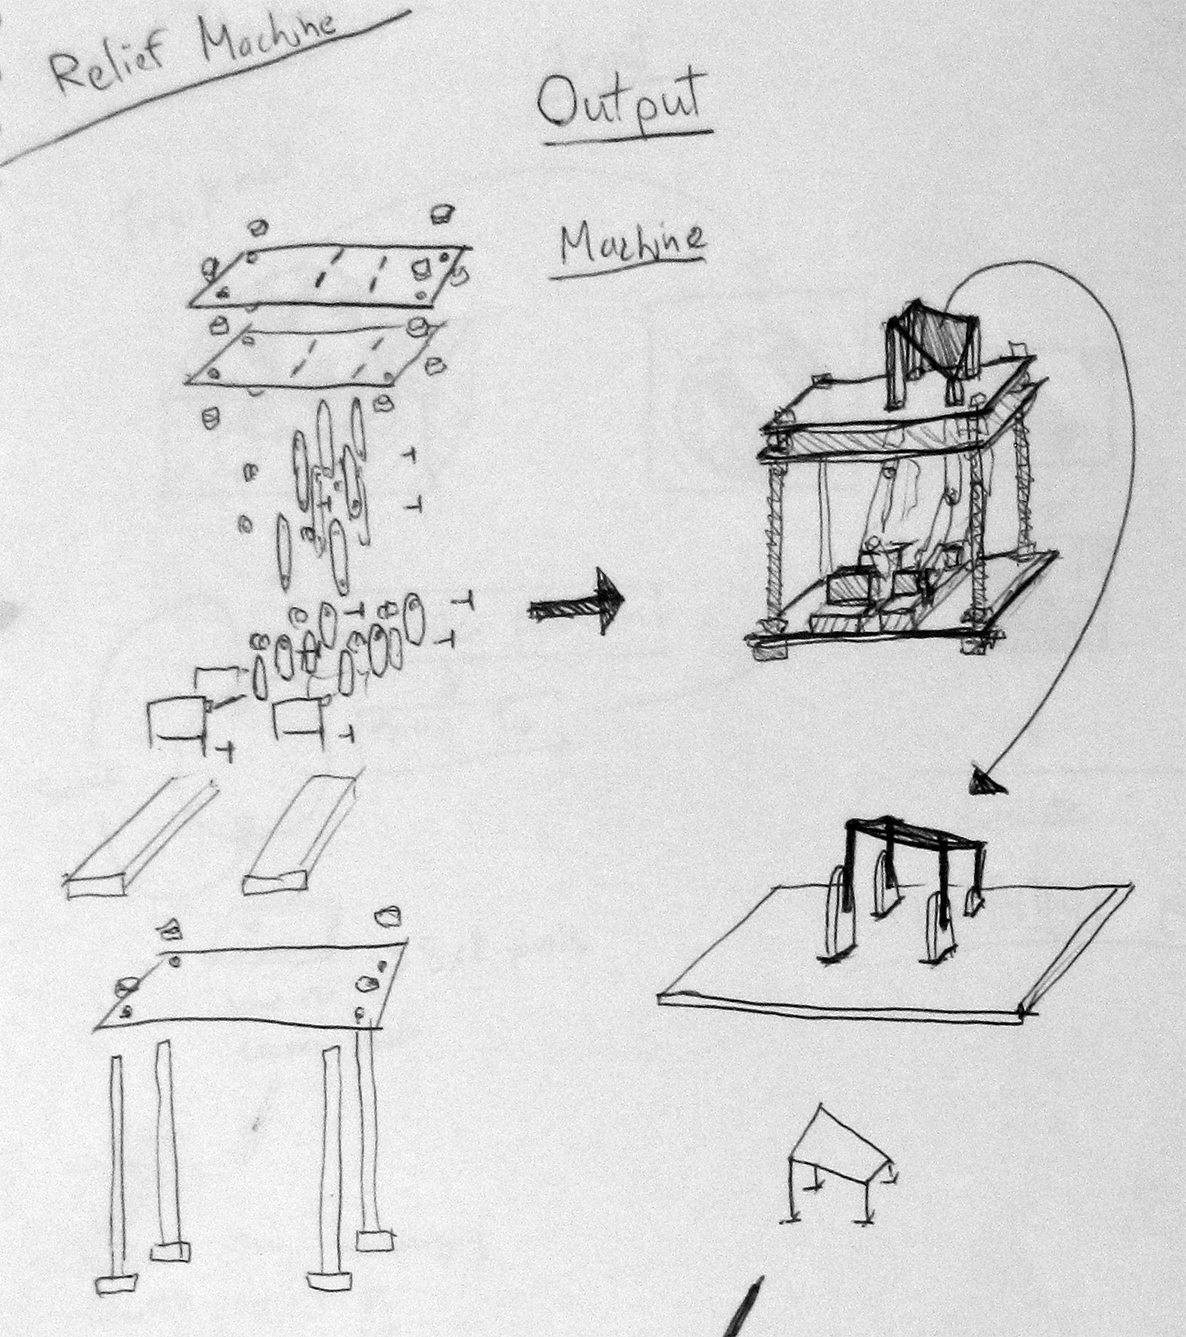 Relief Machine
Output
Machine